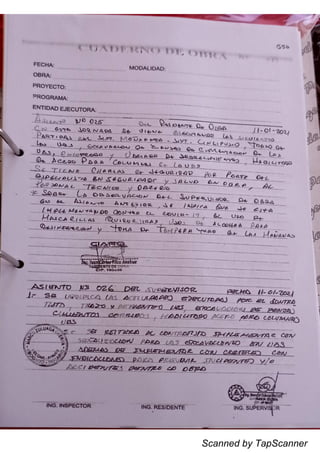 CUADERNO DE OBRA
FECHA: MODALIDAD:
OBRA:
PROYECTO:
PROGRAMA:
ENTIDAD EJECUTORA:
ASIENTO Nº 025 DEL RESIDENTE DE OBRA 11-01-2021
EN ESTA JORNADA SE VIENE EJECUTANDO LAS SIGUIENTES
PARTIDAS
UBS, EXCAVACION DE ZANJAS DE CIMENTACION DE LAS
DE ACERO PARA COLUMNAS
SE TIENE CHARLAS DE SEGURIDAD POR PARTE DEL
ESPECIALISTA EN SEGURIDAD Y SALUD EN OBRA, AL
PERSONAL TECNICO Y OBRERO
SOBRE LA OBSERVACION DEL SUPERVISOR DE OBRA
EN EL ASIENTO ANTERIOR, SE INDICA QUE SE ESTA
IMPLEMENTANDO CONTRA EL COVID-19, EL USO DE
MASCARILLAS QUIRURGICAS, USO DE ALCOHOL PARA
DESINFECCION Y TOMA DE TEMPERATURA EN LAS MAÑANAS
ASIENTO Nº 026 DEL SUPERVISOR FECHA 11-01-2021
1.- SE VERIFICA LAS ACTIVIDADES EJECUTADAS POR EL CONTRA
TISTA, TRAZO Y REPLANTEO UBS, EXCAVACIONES DE ZANJAS
CIMIENTOS CORRIDOS, HABILITADO ACERO PARA COLUMNAS
UBS
SE REITERA AL CONTRATISTA IMPLEMENTAR CON
SEÑALIZACION PARA LAS EXCAVACIONES EN UBS
ADEMAS DE IMPLEMENTAR CON CARTELES CON
INDICACIONES PARA PREVENIR INCIDENTES Y/O
ACCIDENTES DENTRO LA OBRA
ING. INSPECTOR ING. RESIDENTE ING. SUPERVISOR
Scanned by TapScanner